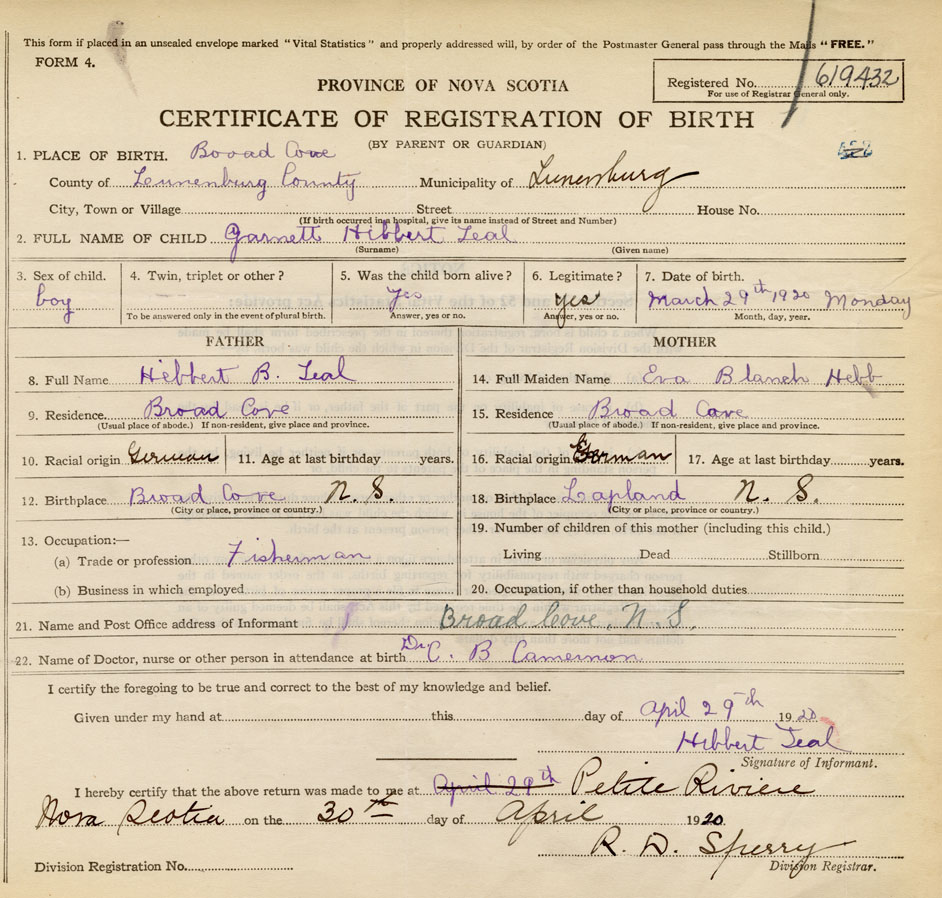 This form if placed in an unsealed envelope marked "Vital Statistics" and properly addressed will, by order of the Postmaster General pass through the Mails "FREE."
FORM 4.
Registered No. 619432
For use of Registrar General only.
PROVINCE OF NOVA SCOTIA
CERTIFICATE OF REGISTRATION OF BIRTH
(BY PARENT OR GUARDIAN)
1. PLACE OF BIRTH. Broad Cove
County of Lunenburg County Municipality of Lunenburg
City, Town or Village Street House No.
(If birth occurred in a hospital, give its name instead of Street and Number)
2. FULL NAME OF CHILD Garnett Hibbert Teal
(Surname) (Given name)
3. Sex of child. 4. Twin, triplet or other? 5. Was the child born alive? 6. Legitimate? 7. Date of birth.
boy Yes yes March 29th 1920 Monday
To be answered only in the event of plural birth. Answer, yes or no. Answer, yes or no. Month, day, year.
FATHER MOTHER
8. Full Name Hibbert B. Teal 14. Full Maiden Name Eva Blanch Hebb
9. Residence Broad Cove 15. Residence Broad Cove
(Usual place of abode.) If non-resident, give place and province. (Usual place of abode.) If non-resident, give place and province.
10. Racial origin German 11. Age at last birthday years. 16. Racial origin German 17. Age at last birthday years.
12. Birthplace Broad Cove N. S. 18. Birthplace Lapland N. S.
(City or place, province or country.) (City or place, province or country.)
13. Occupation:— 19. Number of children of this mother (including this child.)
(a) Trade or profession Fisherman Living Dead Stillborn
(b) Business in which employed 20. Occupation, if other than household duties
21. Name and Post Office address of Informant Broad Cove, N.S.
22. Name of Doctor, nurse or other person in attendance at birth Dr C. B Camernon
I certify the foregoing to be true and correct to the best of my knowledge and belief.
Given under my hand at this day of April 29th 1920
Hibbert Teal
Signature of Informant.
I hereby certify that the above return was made to me at April 29th Petite Riviere
Nova Scotia on the 30th day of April 1920
R. D. Sperry
Division Registration No. Division Registrar.